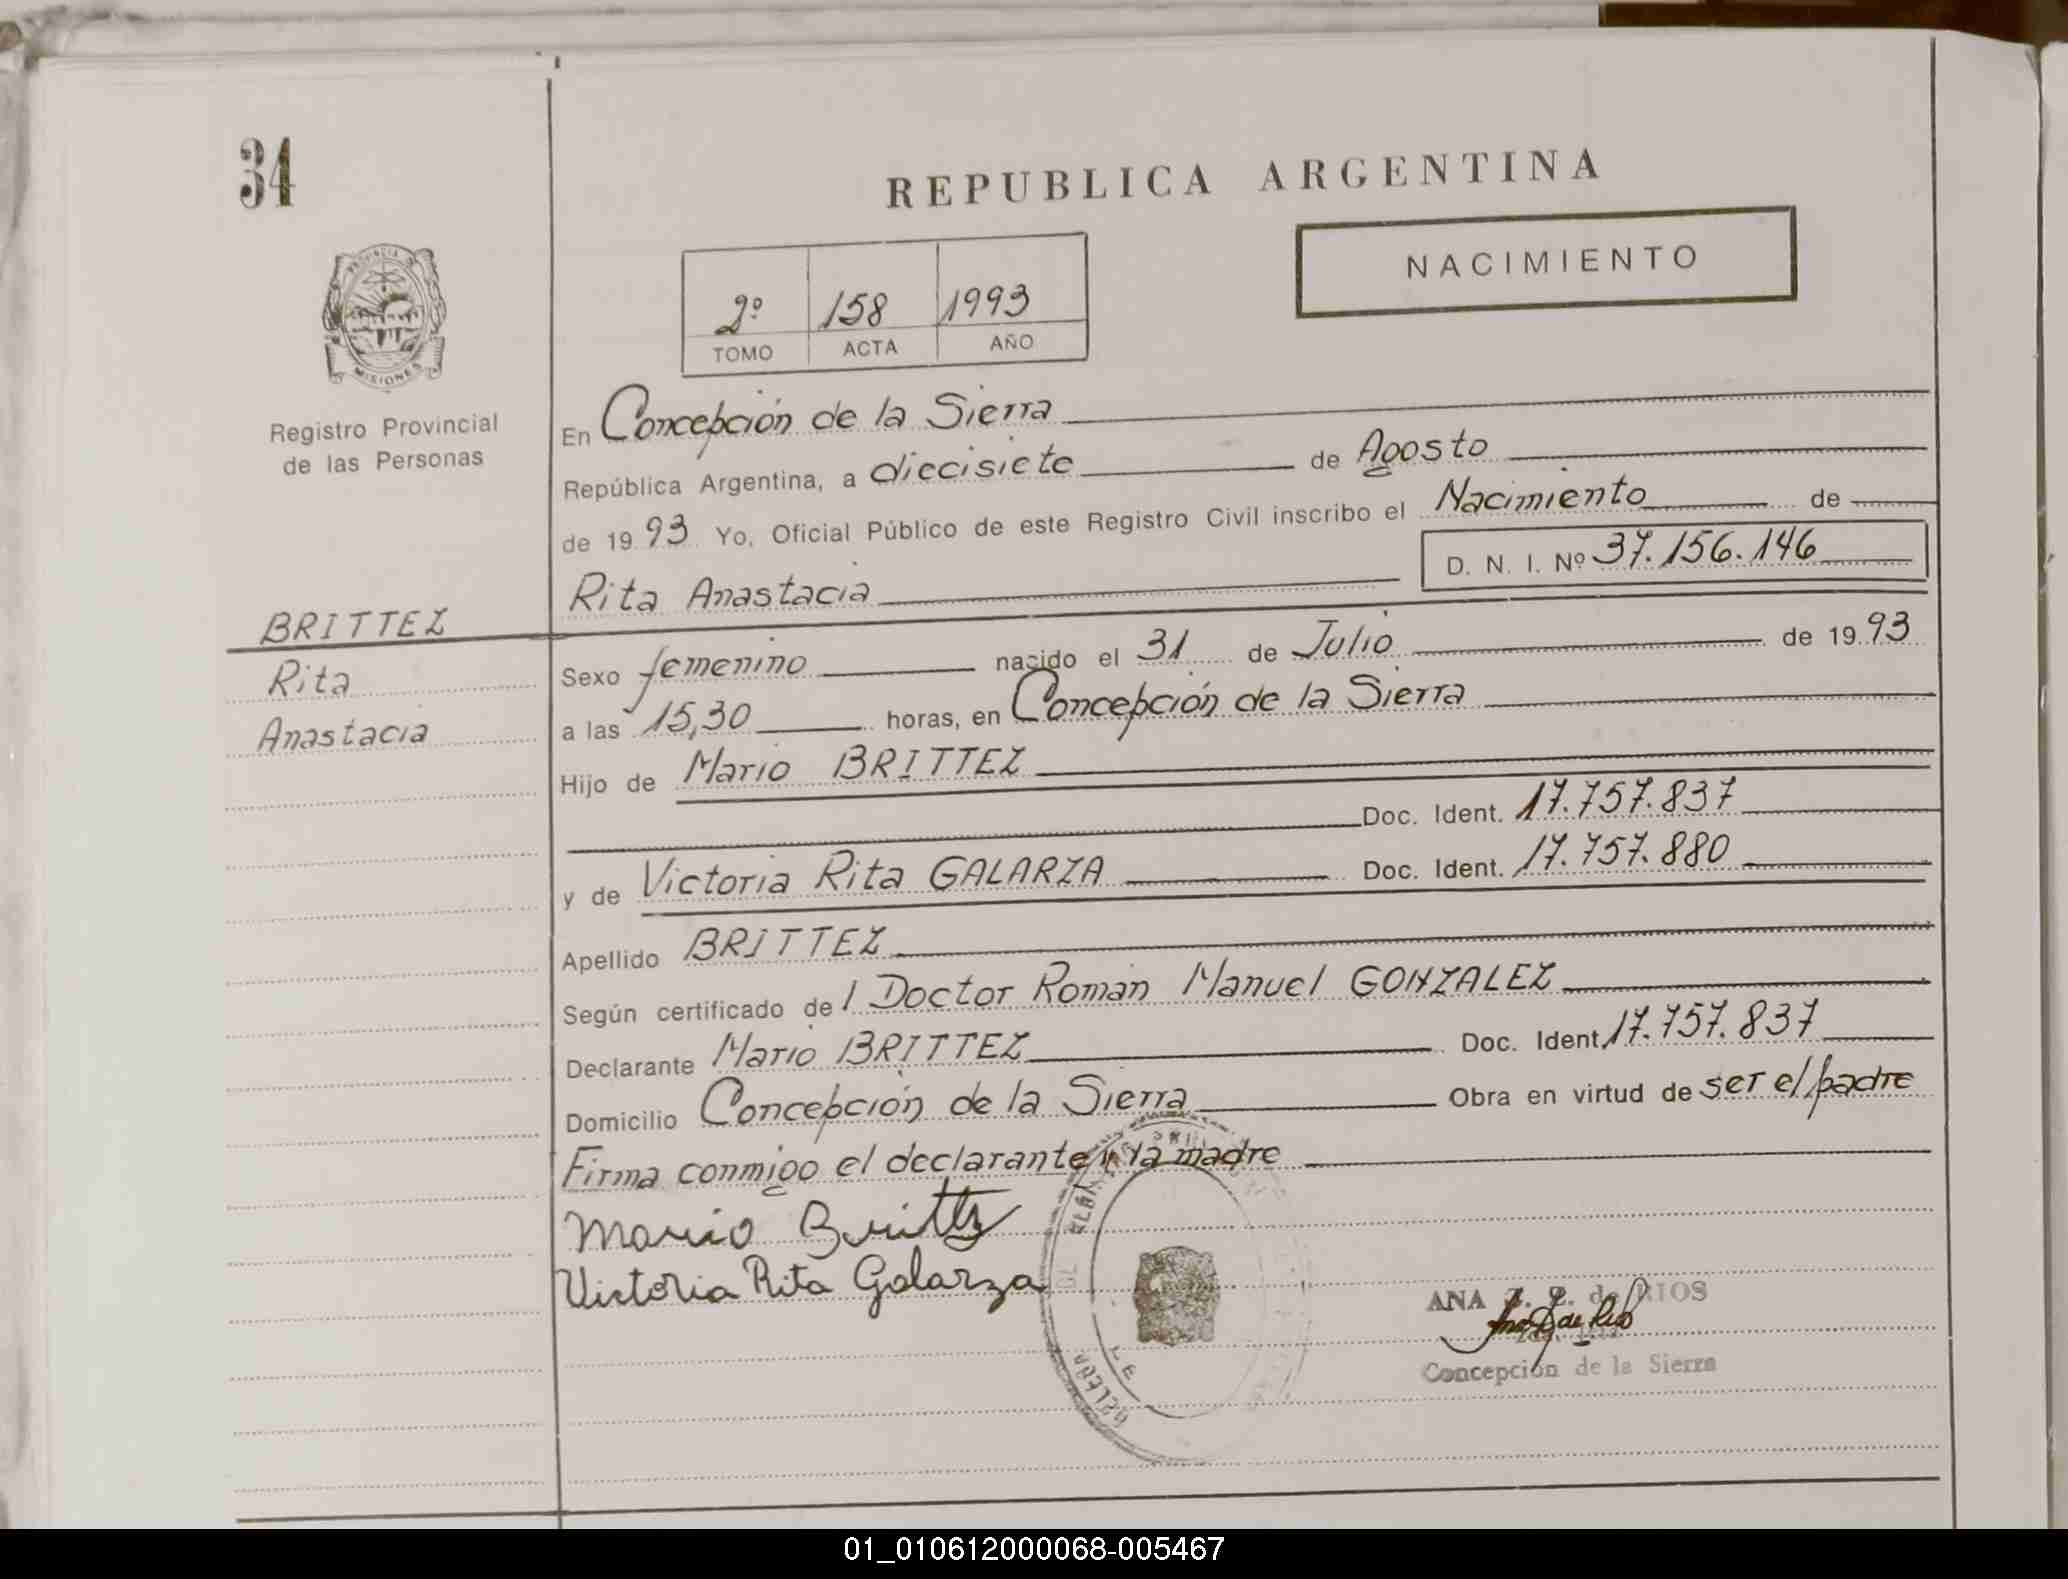 34
REPUBLICA ARGENTINA
NACIMIENTO
PROVINCIA DE
MISIONES
2º 158 1993
TOMO ACTA AÑO
Registro Provincial
de las Personas
En Concepción de la Sierra
República Argentina, a diecisiete de Agosto
de 1993 Yo, Oficial Público de este Registro Civil inscribo el Nacimiento de
D. N. I. Nº 37.156.146
Rita Anastacia
BRITTEZ
Rita
Anastacia
Sexo femenino nacido el 31 de Julio de 1993
a las 15,30 horas, en Concepción de la Sierra
Hijo de Mario BRITTEZ
Doc. Ident. 17.757.837
y de Victoria Rita GALARZA Doc. Ident. 17.757.880
Apellido BRITTEZ
Según certificado del Doctor Román Manuel GONZALEZ
Declarante Mario BRITTEZ Doc. Ident. 17.757.837
Domicilio Concepción de la Sierra Obra en virtud de ser el padre
Firma conmigo el declarante y la madre
Mario Brittez
Victoria Rita Galarza
ANA de RIOS
Concepción de la Sierra
01_010612000068-005467